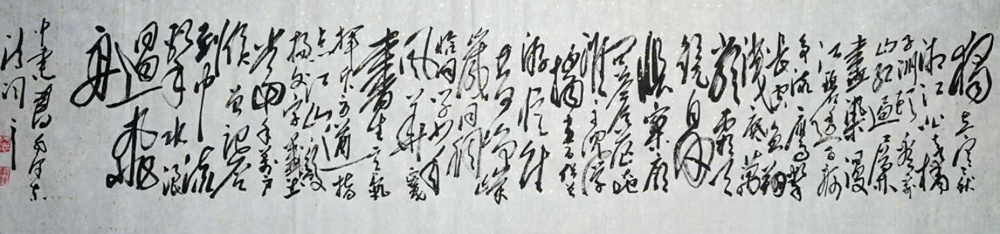 独
立寒秋
湘江北去橘
子洲头看万
山红遍层林
尽染漫
江碧透百舸
争流鹰击
长空鱼翔
浅底万
类霜天
竞自由
怅寥廓
问苍茫大地
谁主沉浮
携来百侣曾
游忆往
昔峥嵘
岁月稠
恰同学少年
风华正茂
书生意气
挥斥方遒指
点江山激
扬文字粪土
当年万户
侯曾记否
到中流
击水浪
遏飞
舟
书毛泽东
诗词